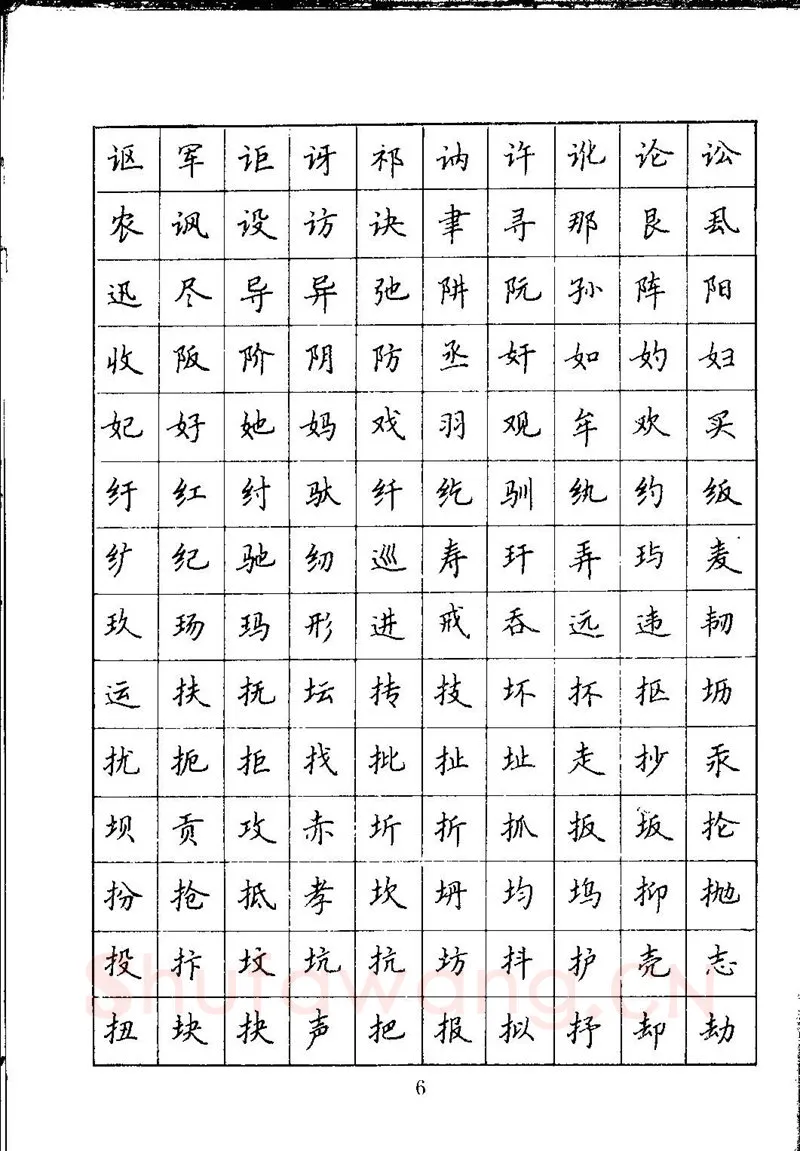 讴 军 讵 讶 祁 讷 许 讹 论 讼
农 讽 设 访 诀 聿 寻 那 艮 虱
迅 尽 导 异 弛 阱 阮 孙 阵 阳
收 阪 阶 阴 防 丞 奸 如 妁 妇
妃 好 她 妈 戏 羽 观 牟 欢 买
纡 红 纣 驮 纤 纥 驯 纨 约 级
纩 纪 驰 纫 巡 寿 玕 弄 玙 麦
玖 玚 玛 形 进 戒 吞 远 违 韧
运 扶 抚 坛 抟 技 坏 抔 抠 坜
扰 扼 拒 找 批 扯 址 走 抄 汞
坝 贡 攻 赤 圻 折 抓 扳 坂 抡
扮 抢 抵 孝 坎 坍 均 坞 抑 抛
投 抃 坟 坑 抗 坊 抖 护 壳 志
扭 块 抉 声 把 报 拟 抒 却 劫
Shufawang.CN
6